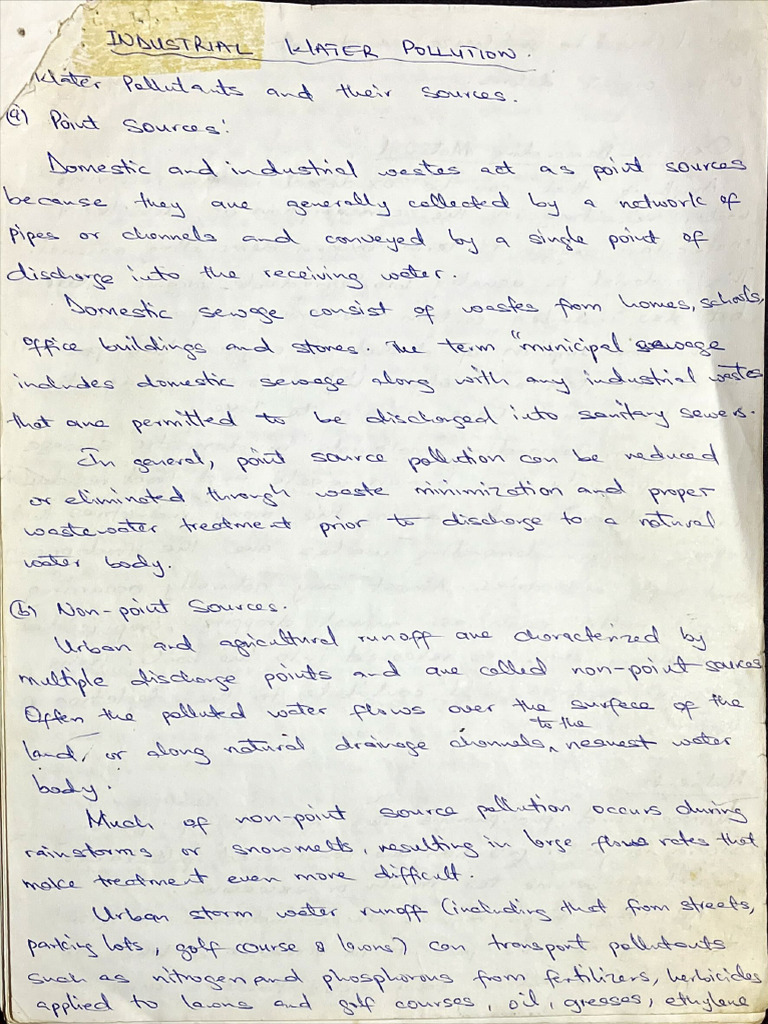 INDUSTRIAL WATER POLLUTION.
Water Pollutants and their sources.
(a) Point Sources:
Domestic and industrial wastes act as point sources
because they are generally collected by a network of
pipes or channels and conveyed by a single point of
discharge into the receiving water.
Domestic sewage consist of wastes from homes, schools,
office buildings and stores. The term "municipal sewage
includes domestic sewage along with any industrial wastes
that are permitted to be discharged into sanitary sewers.
In general, point source pollution can be reduced
or eliminated through waste minimization and proper
wastewater treatment prior to discharge to a natural
water body.
(b) Non-point Sources.
Urban and agricultural runoff are characterized by
multiple discharge points and are called non-point sources
Often the polluted water flows over the surface of the
land, or along natural drainage channels, to the nearest water
body.
Much of non-point source pollution occurs during
rainstorms or snowmelts, resulting in large flow rates that
make treatment even more difficult.
Urban storm water runoff (including that from streets,
parking lots, golf course & lawns) can transport pollutants
such as nitrogen and phosphorous from fertilizers, herbicides
applied to lawns and golf courses, oil, greases, ethylene